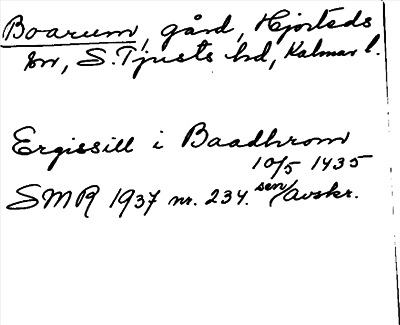 Boarum, gård, Hjorteds
sn, S. Tjusts hd, Kalmar l.
Ergissill i Baadhrom
10/5 1435
SMR 1937 nr. 234. sen/avskr.